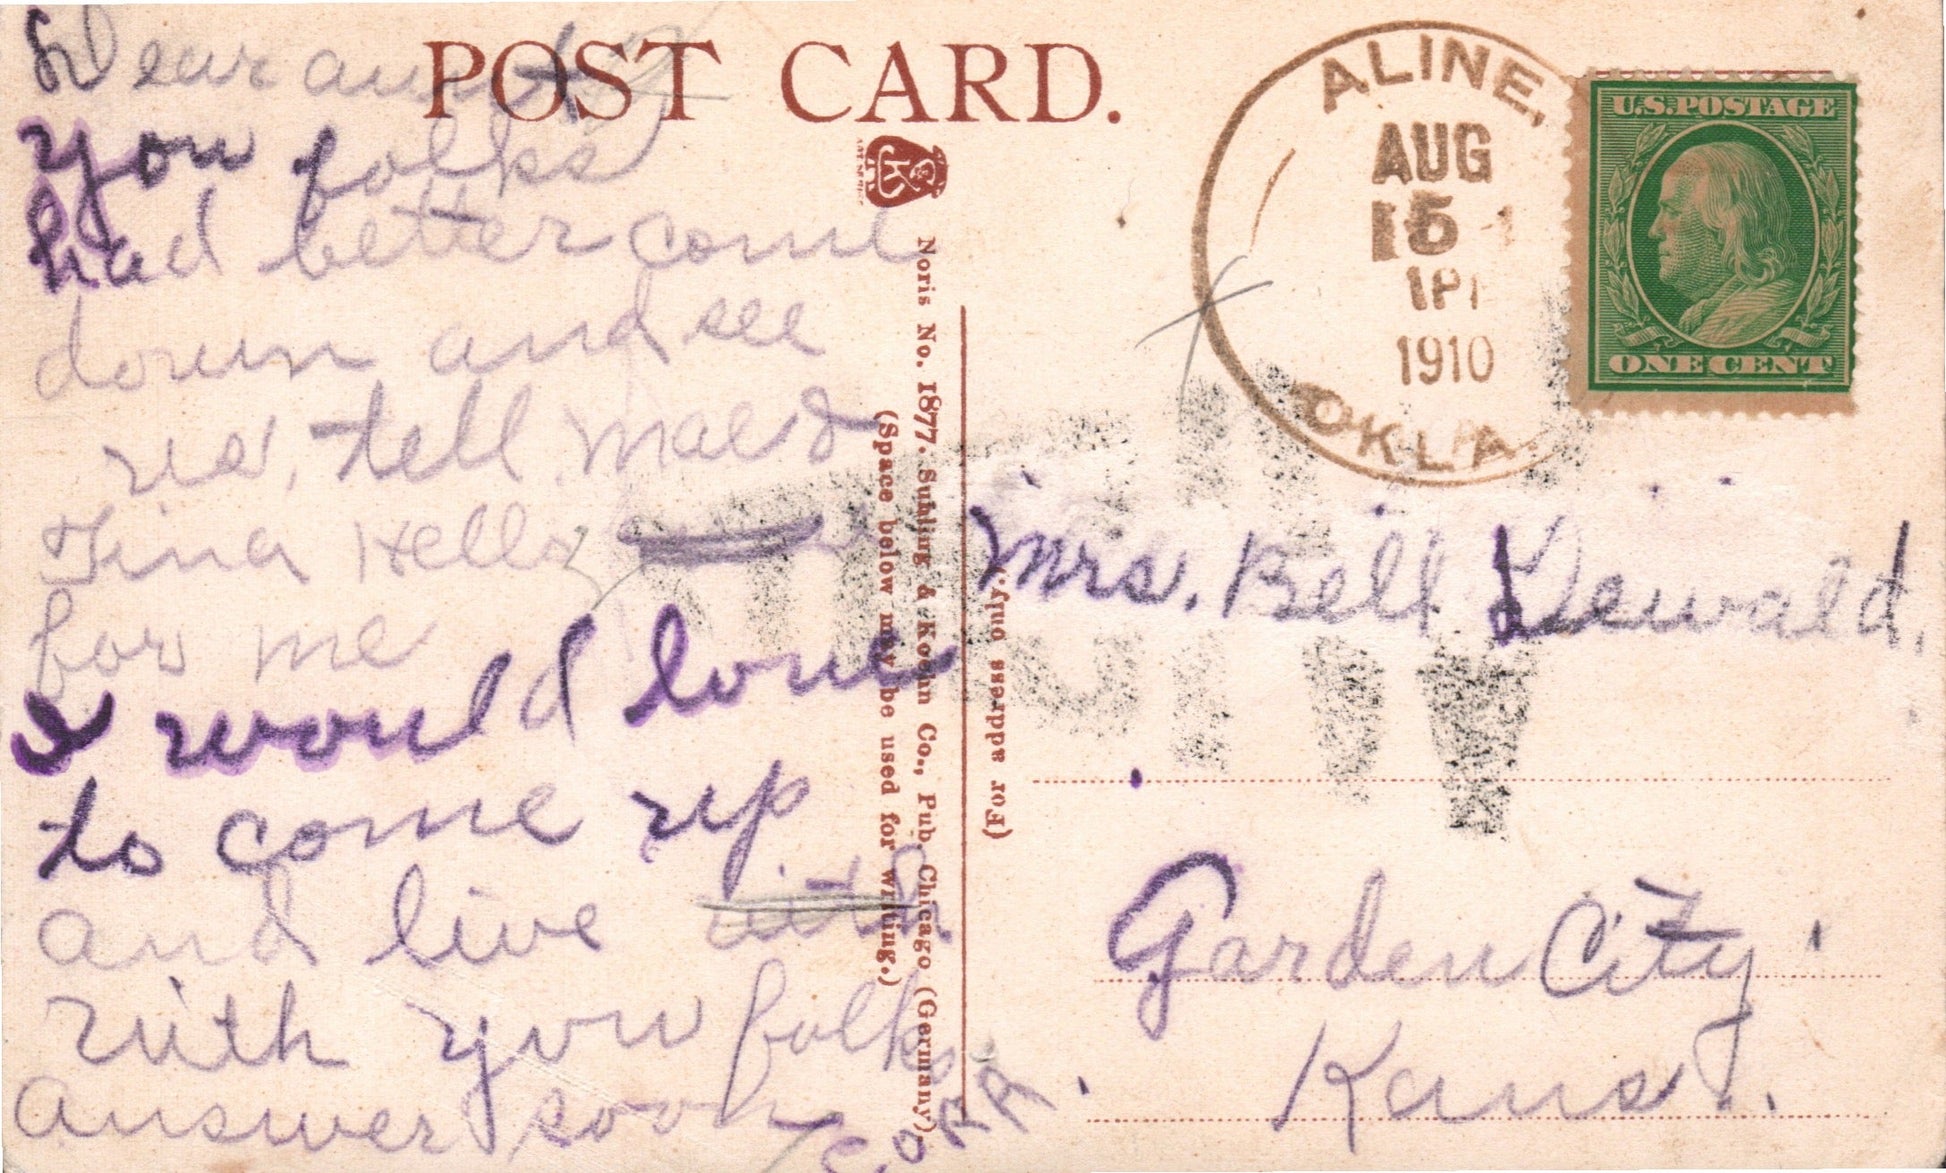 POST CARD.
Dear aunty
you folks
had better come
down and see
us, tell Maud
Tina Hello
for me
I would love
to come up
and live with
with you folks
answer soon
CORA
Noris No. 1877. Suhling & Koehn Co., Pub. Chicago (Germany)
(Space below may be used for writing.)
(For address only.)
ALINE,
AUG
5
1910
OKLA.
U.S. POSTAGE
ONE CENT
Mrs. Bell
Garden City
Kans.